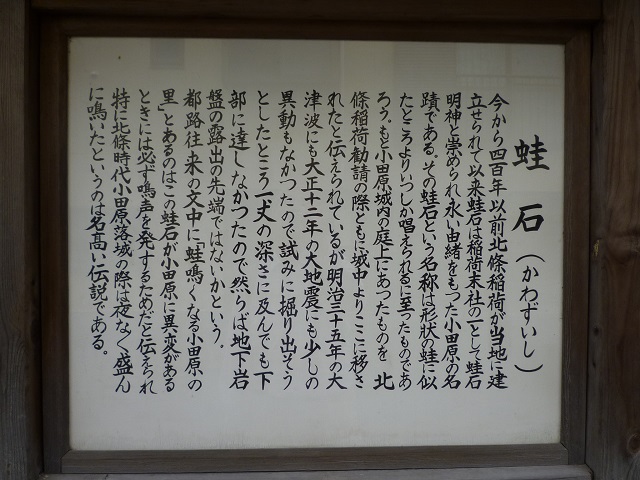 蛙石(かわずいし)
今から四百年以前北條稲荷が当地に建
立せられて以来蛙石は稲荷末社の一として蛙石
明神と崇められ永い由緒をもつた小田原の名
蹟である。その蛙石という名称は形状の蛙に似
たところよりいつしか唱えられるに至つたものであ
ろう。もと小田原城内の庭上にあつたものを 北
條稲荷勧請の際ともに城中よりここに移さ
れたと伝えられているが明治三十五年の大
津波にも大正十二年の大地震にも少しの
異動もなかつたので試みに掘り出そう
としたところ一丈の深さに及んでも下
部に達しなかつたので然らば地下岩
盤の露出の先端ではないかという。
都路往来の文中に「蛙鳴くなる小田原の
里」とあるのはこの蛙石が小田原に異変がある
ときには必ず鳴声を発するためだと伝えられ
特に北條時代小田原落城の際は夜なく盛ん
に鳴いたというのは名髙い伝説である。